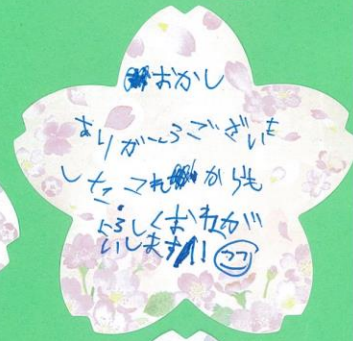 おかし
ありがとうございま
した これからも
よろしくおねが
いします!!